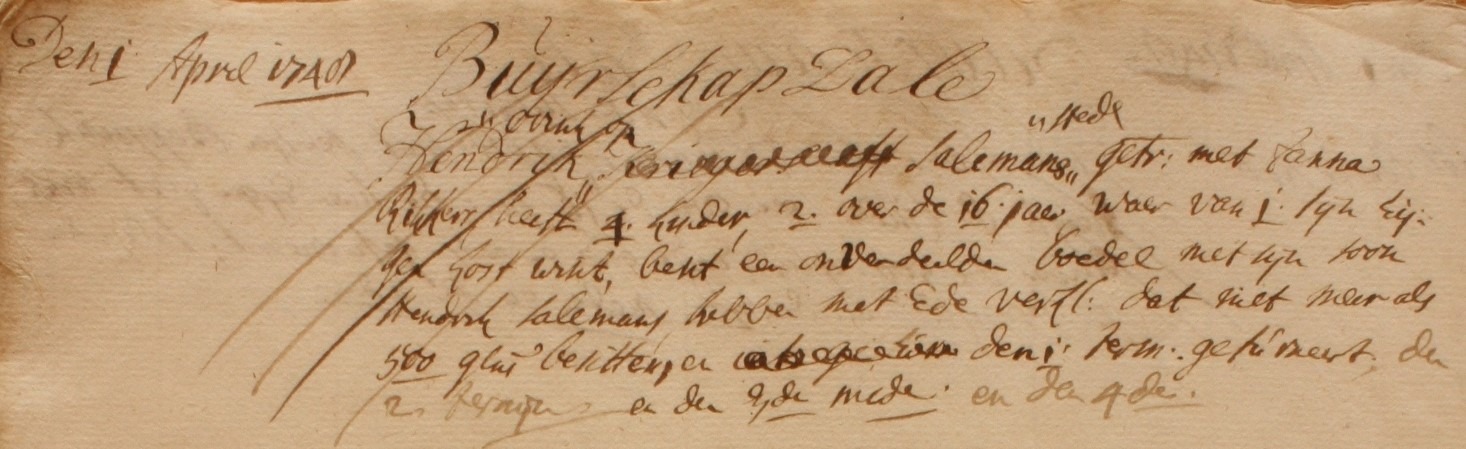 Den 1 April 1748 Buÿrschap Dale
Hendrik Salemans stede getr: met Janna
heeft 4. kinder, 2. over de 16. jaer, waer van 1. sijn Eij-
gen kost wint, besit een onverdeelden boedel met sijn soon
Hendrik Salemans hebben met Ede verkl: dat niet meer als
500 gln besitten, en den 1. term. gefurneert, den
2. termijn en den 3de mede. en den 4de.